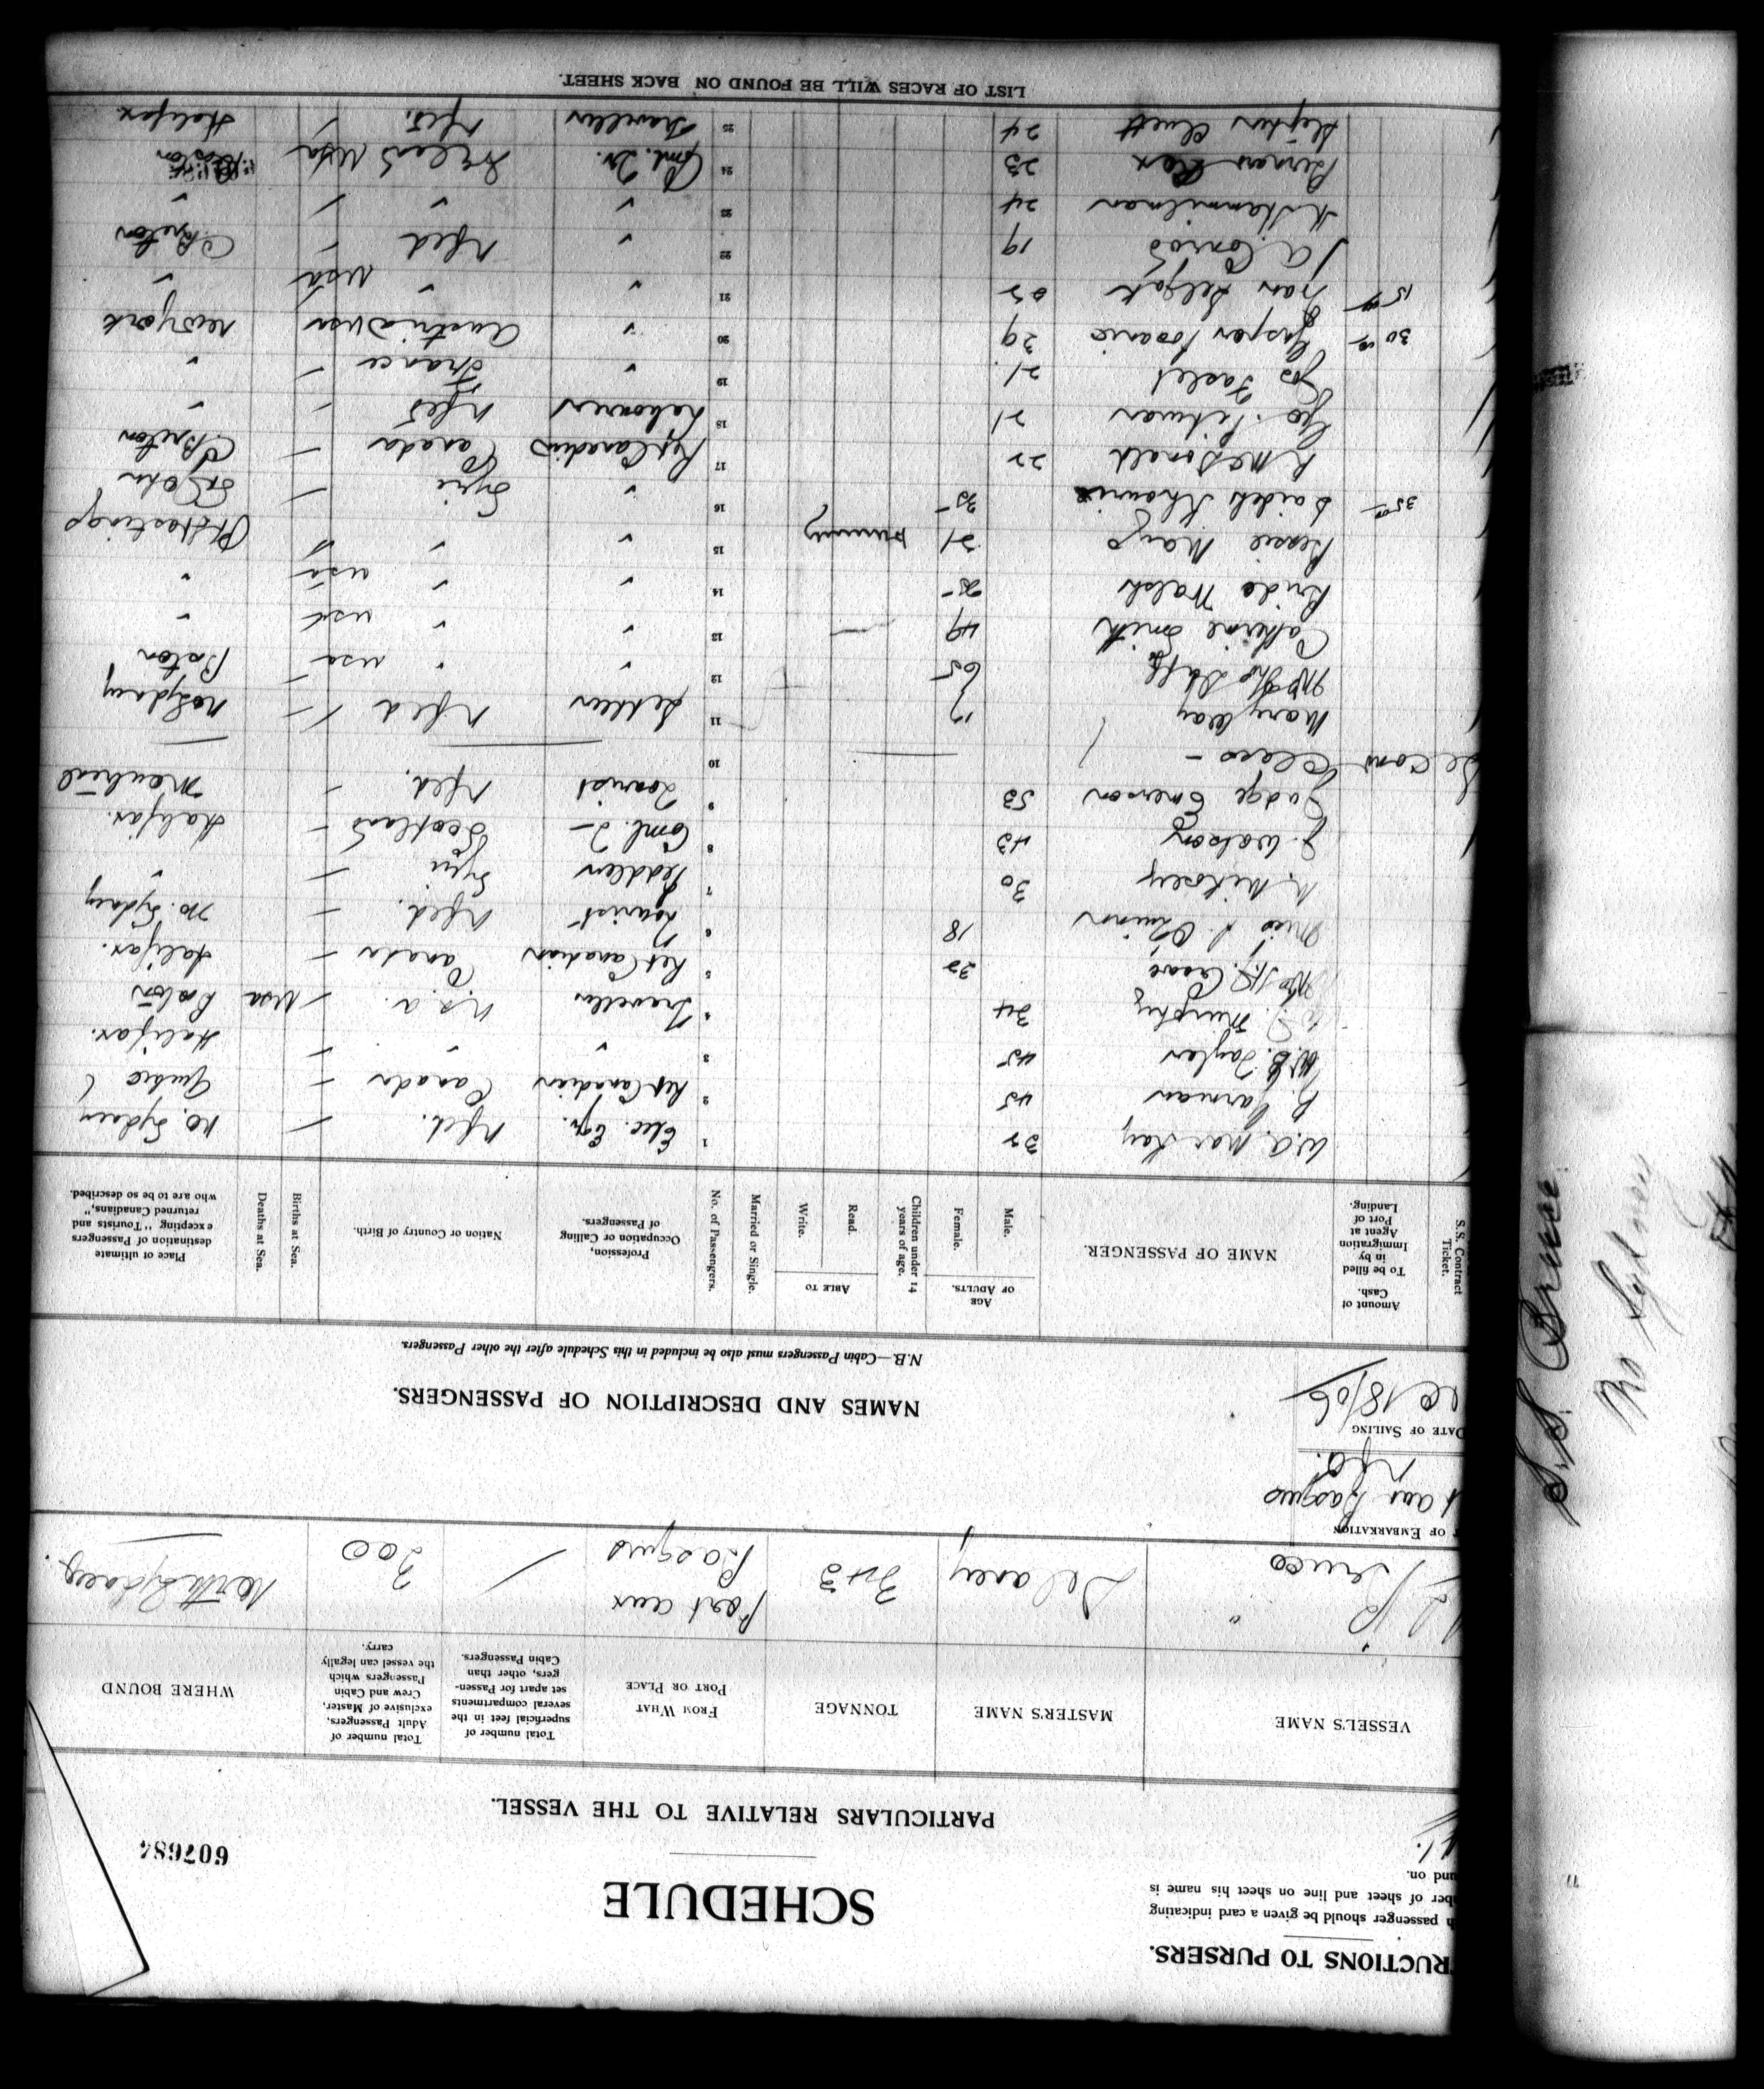 INSTRUCTIONS TO PURSERS.
passenger should be given a card indicating
ber of sheet and line on sheet his name is
und on.
SCHEDULE
607684
PARTICULARS RELATIVE TO THE VESSEL.
VESSEL'S NAME
MASTER'S NAME
TONNAGE
FROM WHAT PORT OR PLACE
Total number of superficial feet in the several compartments set apart for Passengers, other than Cabin Passengers.
Total number of Adult Passengers, exclusive of Master, Crew and Cabin Passengers which the vessel can legally carry.
WHERE BOUND
Bruce
Delaney
Port aux Basques
200
North Sydney
OF EMBARKATION
aux Basques
Nfd.
DATE OF SAILING
18/06
NAMES AND DESCRIPTION OF PASSENGERS.
N.B.—Cabin Passengers must also be included in this Schedule after the other Passengers.
S.S. Contract Ticket.
Amount of Cash. To be filled in by Immigration Agent at Port of Landing.
NAME OF PASSENGER.
AGE OF ADULTS.
Male.
Female.
Children under 14 years of age.
ABLE TO
Read.
Write.
Married or Single.
No. of Passengers.
Profession, Occupation or Calling of Passengers.
Nation or Country of Birth.
Births at Sea.
Deaths at Sea.
Place of ultimate destination of Passengers excepting "Tourists and returned Canadians," who are to be so described.
W.A. MacKay 32 1 Elec. Egr. Nfld. No. Sydney
45 2 Ret Canadian Canada Quebec
W.B. Taylor 45 3 " " Halifax.
Murphy 34 4 Traveller U.S.A. USA Boston
32 5 Ret Canadian Canada Halifax.
Miss 18 6 Tourist Nfld. No. Sydney
30 7 Peddler Syria "
J. Watson 43 8 Coml. T— Scotland Halifax.
Judge Emerson 53 9 Tourist Nfld. Montreal
Second Class — 10
Mary Way 17 11 Settler Nfld No Sydney
Mrs 65 12 " " USA Boston
Catherine Smith 49 13 " " USA "
Bride Walsh 25 14 " " USA "
Bessie Mayo 21 15 " " Pt Hastings
35 Saideh Khouri 35 16 " Syria St John
R McDonald 22 17 Ret Canadian Canada C Breton
Geo. Pitman 21 18 Labourer Nfld "
Jos 21 19 " France "
30 Gasper 39 20 " Austria USA New York
15 Ivan 21 " " USA "
J A 19 22 " Nfld C Breton
24 23 " " "
23 24 Coml. Tr. Ireland USA Boston
Stephen Cluett 24 25 Traveller Nfld. Halifax
LIST OF RACES WILL BE FOUND ON BACK SHEET.
S.S. Bruce
No Sydney